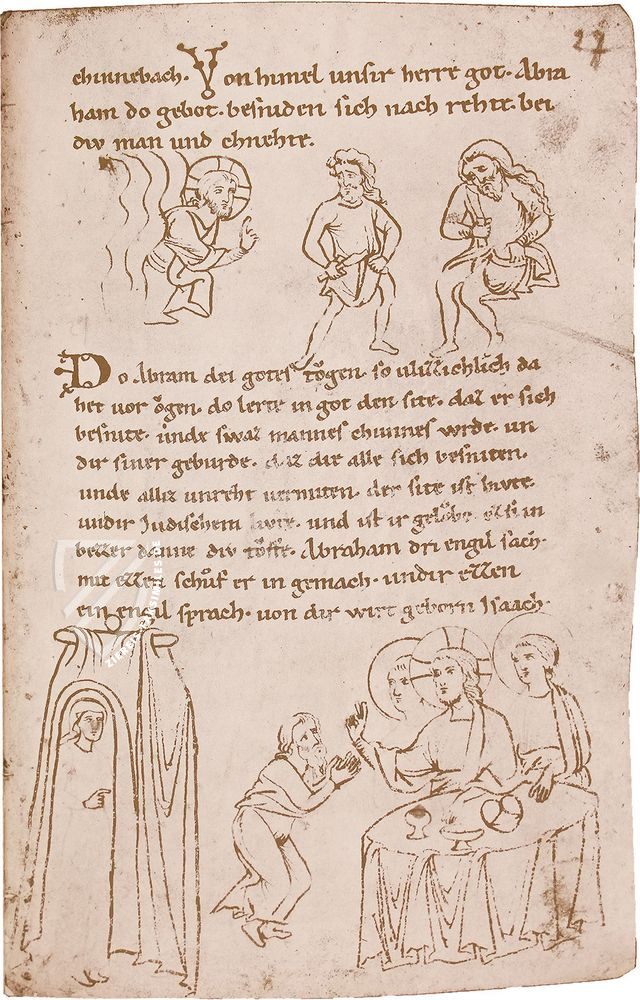 27
chunnebach. Von himel unsir herre got. Abra
ham do gebot. besniden sich nach rehte. bei
div man und chnehte.
Do Abram dei gotes tŏgen. so
het vor ŏgen. do lerte in got den site. daz er sich
besnite. unde swaz mannes chunnes wrde. un
dir siner geburde. daz die alle sich besniten.
unde alliz unreht vermiten. der site ist hivte
undir Judischem livte. und ist ir gelŏbe. in
bezzer danne div tŏffe. Abraham dri engil sach.
mit ezzen schůf er in gemach. undir ezzen
ein engil sprach. von dir wirt geborn Isaach.